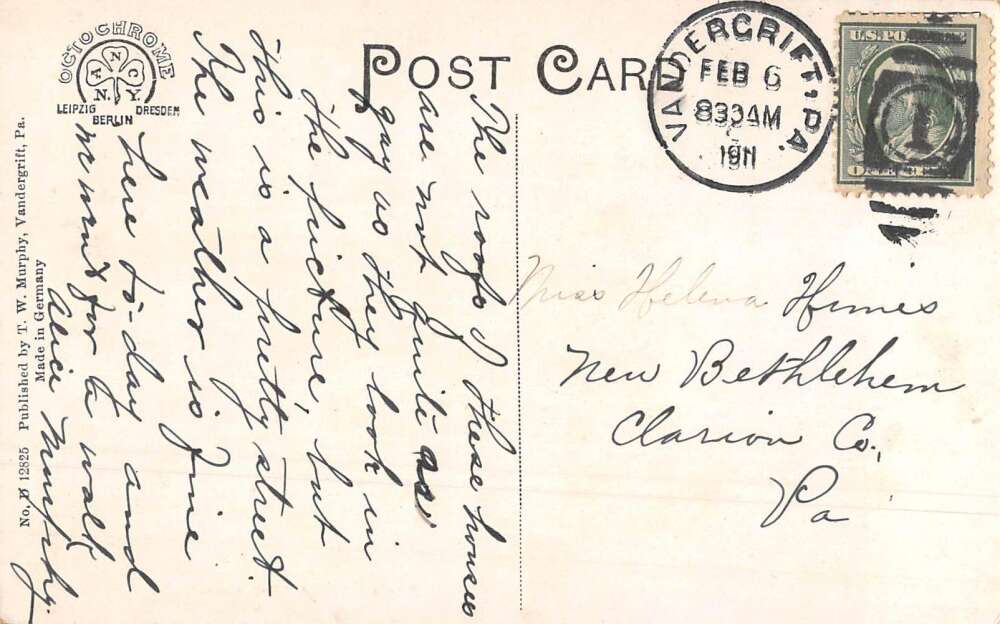 OCTOCHROME
A N C
N. Y.
LEIPZIG DRESDEN
BERLIN
POST CARD
VANDERGRIFT, PA.
FEB 6
830AM
1911
U.S. PO
1
The roofs of these houses
are not quite as
gay as they look in
the picture, but
this is a pretty street.
The weather is fine
here to-day and
we went for a walk
Alice Murphy.
Miss Helena Himes
New Bethlehem
Clarion Co.,
Pa
No. D 12825 Published by T. W. Murphy, Vandergrift, Pa.
Made in Germany